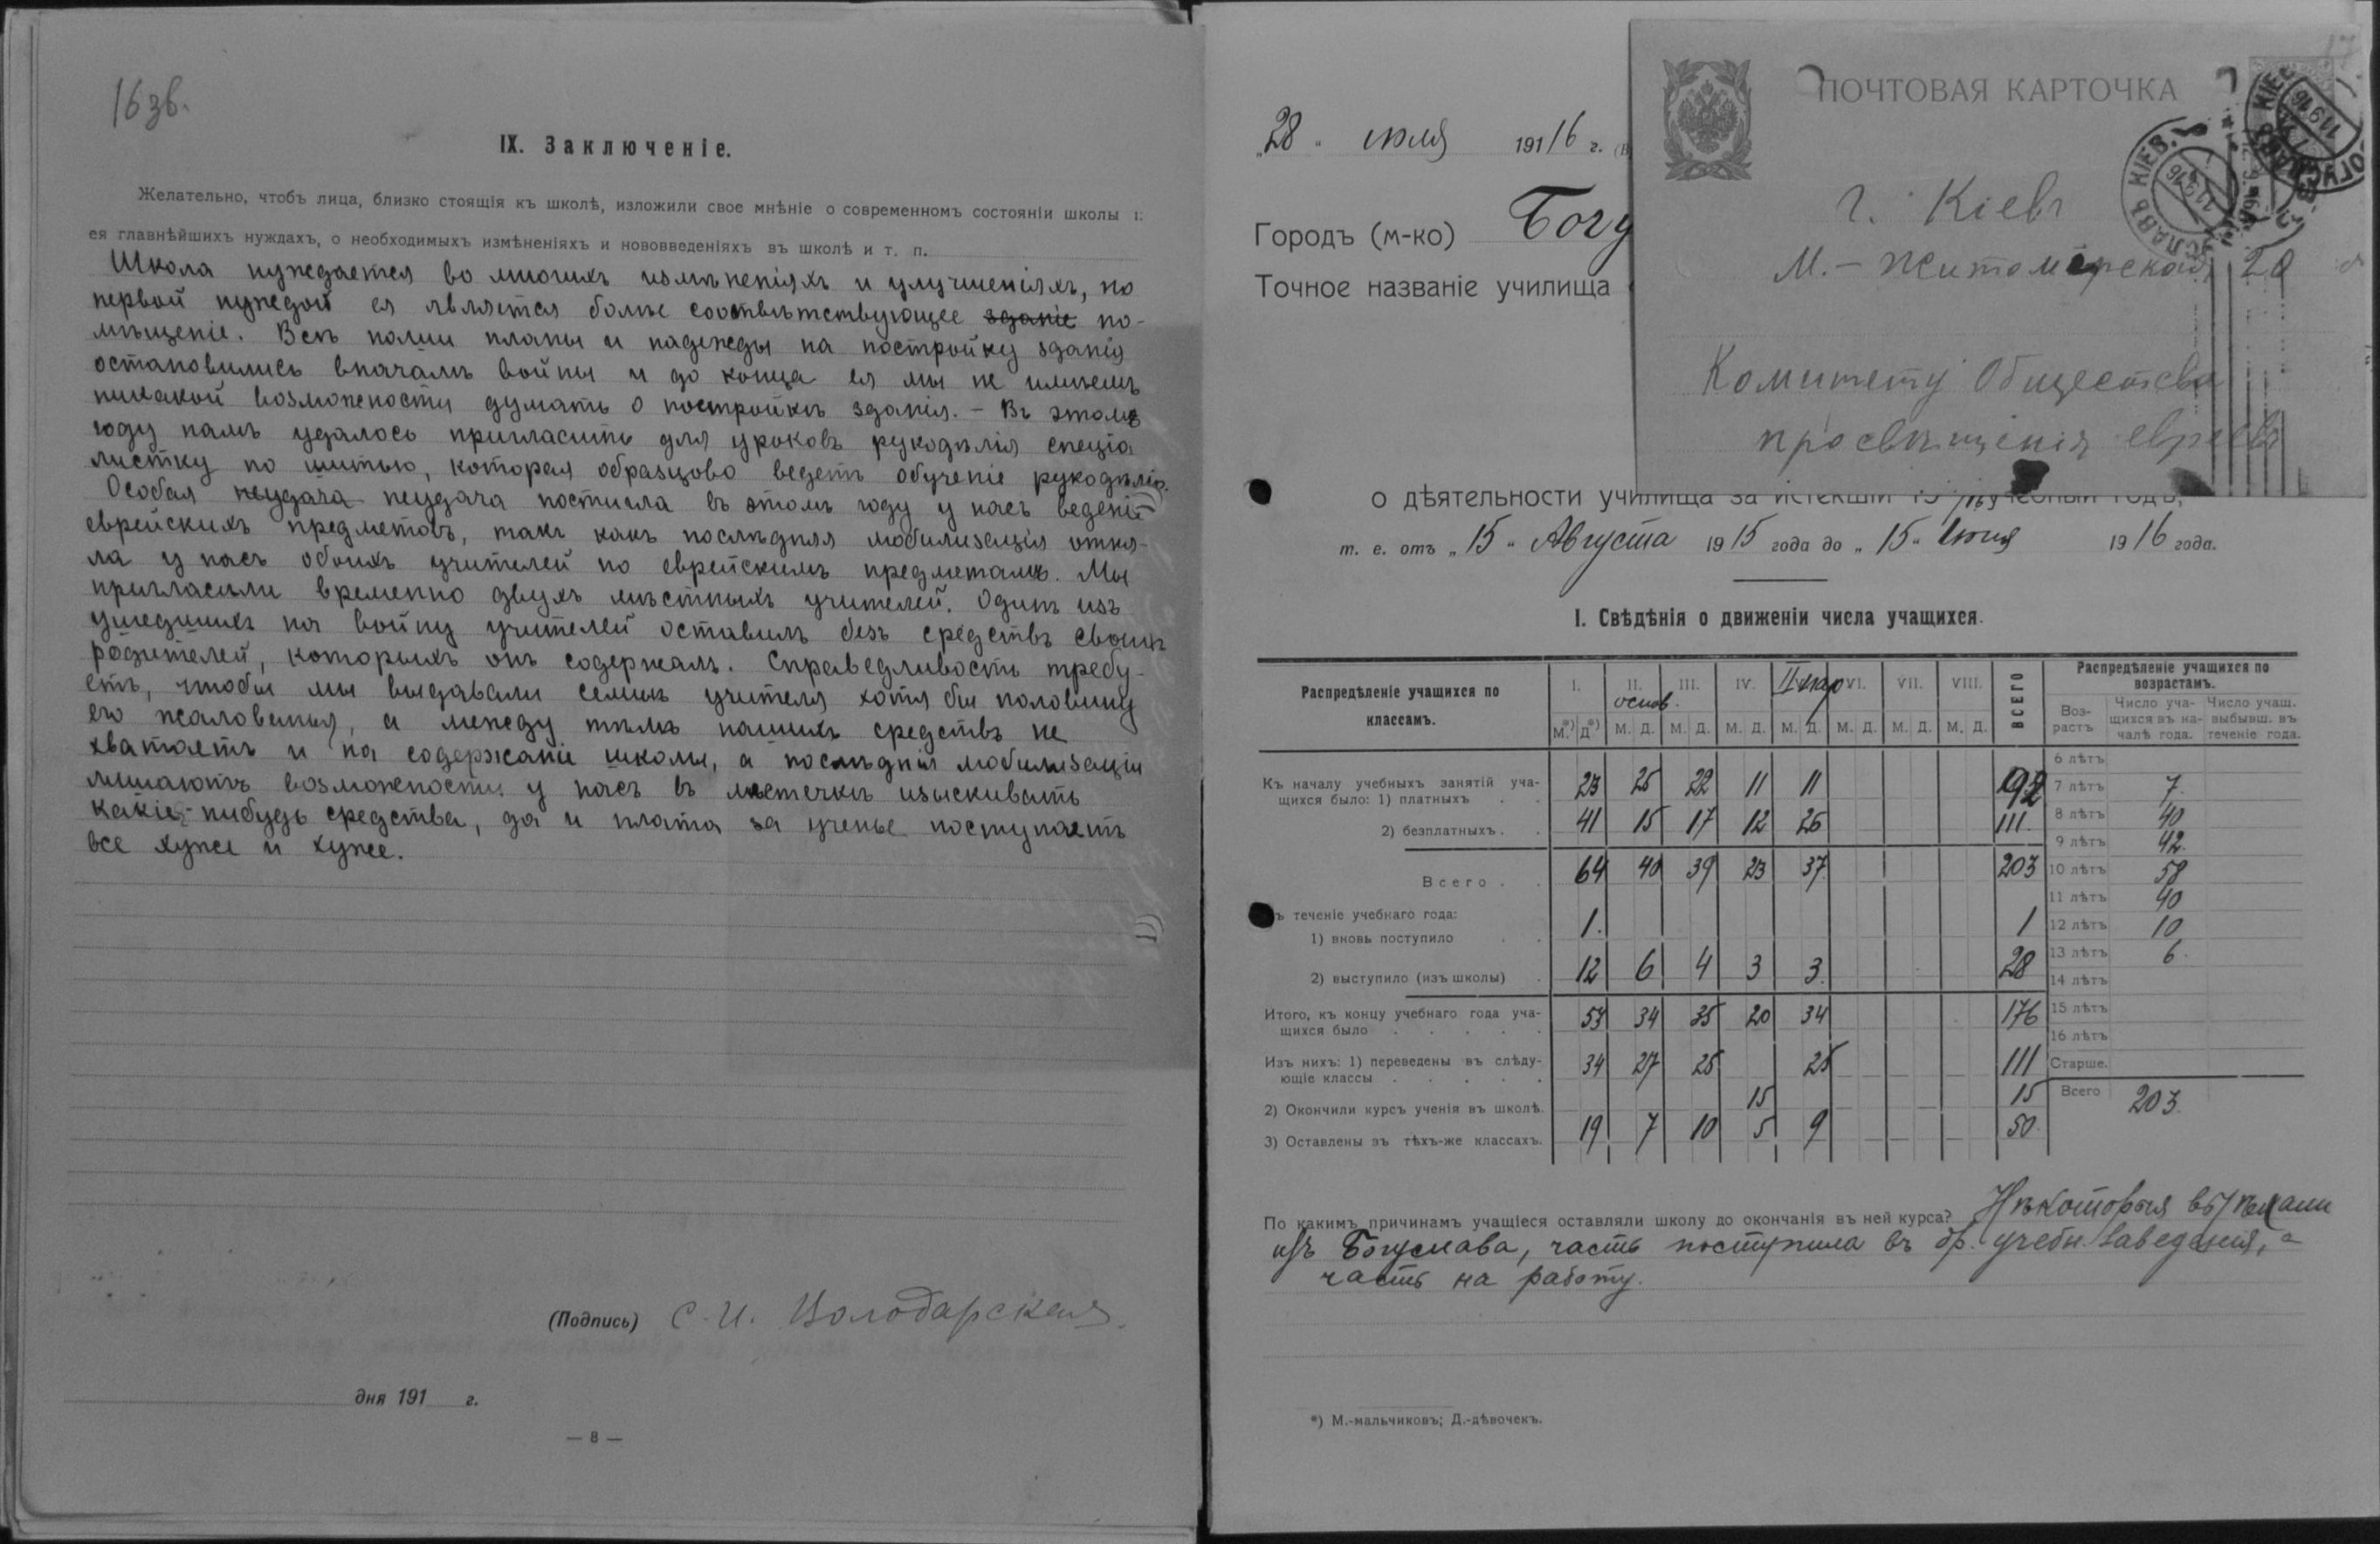 16 зв.
IX. Заключеніе.
Желательно, чтобъ лица, близко стоящія къ школѣ, изложили свое мнѣніе о современномъ состояніи школы
ея главнѣйшихъ нуждахъ, о необходимыхъ измѣненіяхъ и нововведеніяхъ въ школѣ и т. п.
Школа нуждается во многихъ измѣненіяхъ и улучшеніяхъ, но
первой нуждой ея является болѣе соотвѣтствующее зданіе по-
мѣщеніе. Всѣ наши планы и надежды на постройку зданія
остановились вначалѣ войны и до конца ея мы не имѣемъ
никакой возможности думать о постройкѣ зданія. – Въ этомъ
году намъ удалось пригласить для уроковъ рукодѣлія спеціа
листку по шитью, которая образцово ведетъ обученіе рукодѣлію.
Особая неудача неудача постигла въ этомъ году у насъ веденіе
еврейскихъ предметовъ, такъ какъ послѣдняя мобилизація отня-
ла у насъ обоихъ учителей по еврейскимъ предметамъ. Мы
пригласили временно двухъ мѣстныхъ учителей. Одинъ изъ
ушедшихъ на войну учителей оставилъ безъ средствъ своихъ
родителей, которыхъ онъ содержалъ. Справедливость требу-
етъ, чтобы мы выдавали семьѣ учителя хотя бы половину
его жалованья, а между тѣмъ нашихъ средствъ не
хватаетъ и на содержаніе школы, а послѣднія мобилизаціи
лишаютъ возможности у насъ въ мѣстечкѣ изыскивать
какіе-нибудь средства, да и плата за ученье поступаетъ
все хуже и хуже.
(Подпись) С. И. Володарская.
дня 191 г.
— 8 —
17
ПОЧТОВАЯ КАРТОЧКА
г. Кіевъ
М.- Житомірская 20
Комитету Общества
просвѣщенія евреевъ
„28" іюля 1916 г.
Городъ (м-ко) Богу
Точное названіе училища
о дѣятельности училища за истекшій 15/16 учебный годъ,
т. е. отъ „15" Августа 1915 года до „15" Іюня 1916 года.
I. Свѣдѣнія о движеніи числа учащихся.
Распредѣленіе учащихся по классамъ. I. II. III. IV. II пар VI. VII. VIII. ВСЕГО
основ.
М.*) Д*) М. Д. М. Д. М. Д. М. Д. М. Д. М. Д. М. Д.
Къ началу учебныхъ занятій уча-
щихся было: 1) платныхъ 23 25 22 11 11 92
2) безплатныхъ. 41 15 17 12 26 111.
Всего 64 40 39 23 37 203
теченіе учебнаго года:
1) вновь поступило 1. 1
2) выступило (изъ школы) 12 6 4 3 3. 28
Итого, къ концу учебнаго года уча-
щихся было 53 34 35 20 34 176
Изъ нихъ: 1) переведены въ слѣду-
ющіе классы 34 27 25 25 111
2) Окончили курсъ ученія въ школѣ. 15 15
3) Оставлены въ тѣхъ-же классахъ. 19 7 10 5 9 50
Распредѣленіе учащихся по
возрастамъ.
Воз-растъ Число уча-щихся въ на-чалѣ года. Число учащ. выбывш. въ теченіе года.
6 лѣтъ
7 лѣтъ 7.
8 лѣтъ 40
9 лѣтъ 42.
10 лѣтъ 58
11 лѣтъ 40
12 лѣтъ 10
13 лѣтъ 6.
14 лѣтъ
15 лѣтъ
16 лѣтъ
Старше.
Всего 203.
По какимъ причинамъ учащіеся оставляли школу до окончанія въ ней курса? Нѣкоторыя выѣхали
изъ Богуслава, часть поступила въ др. учебн. заведенія, а
часть на работу.
*) М.-мальчиковъ; Д.-дѣвочекъ.